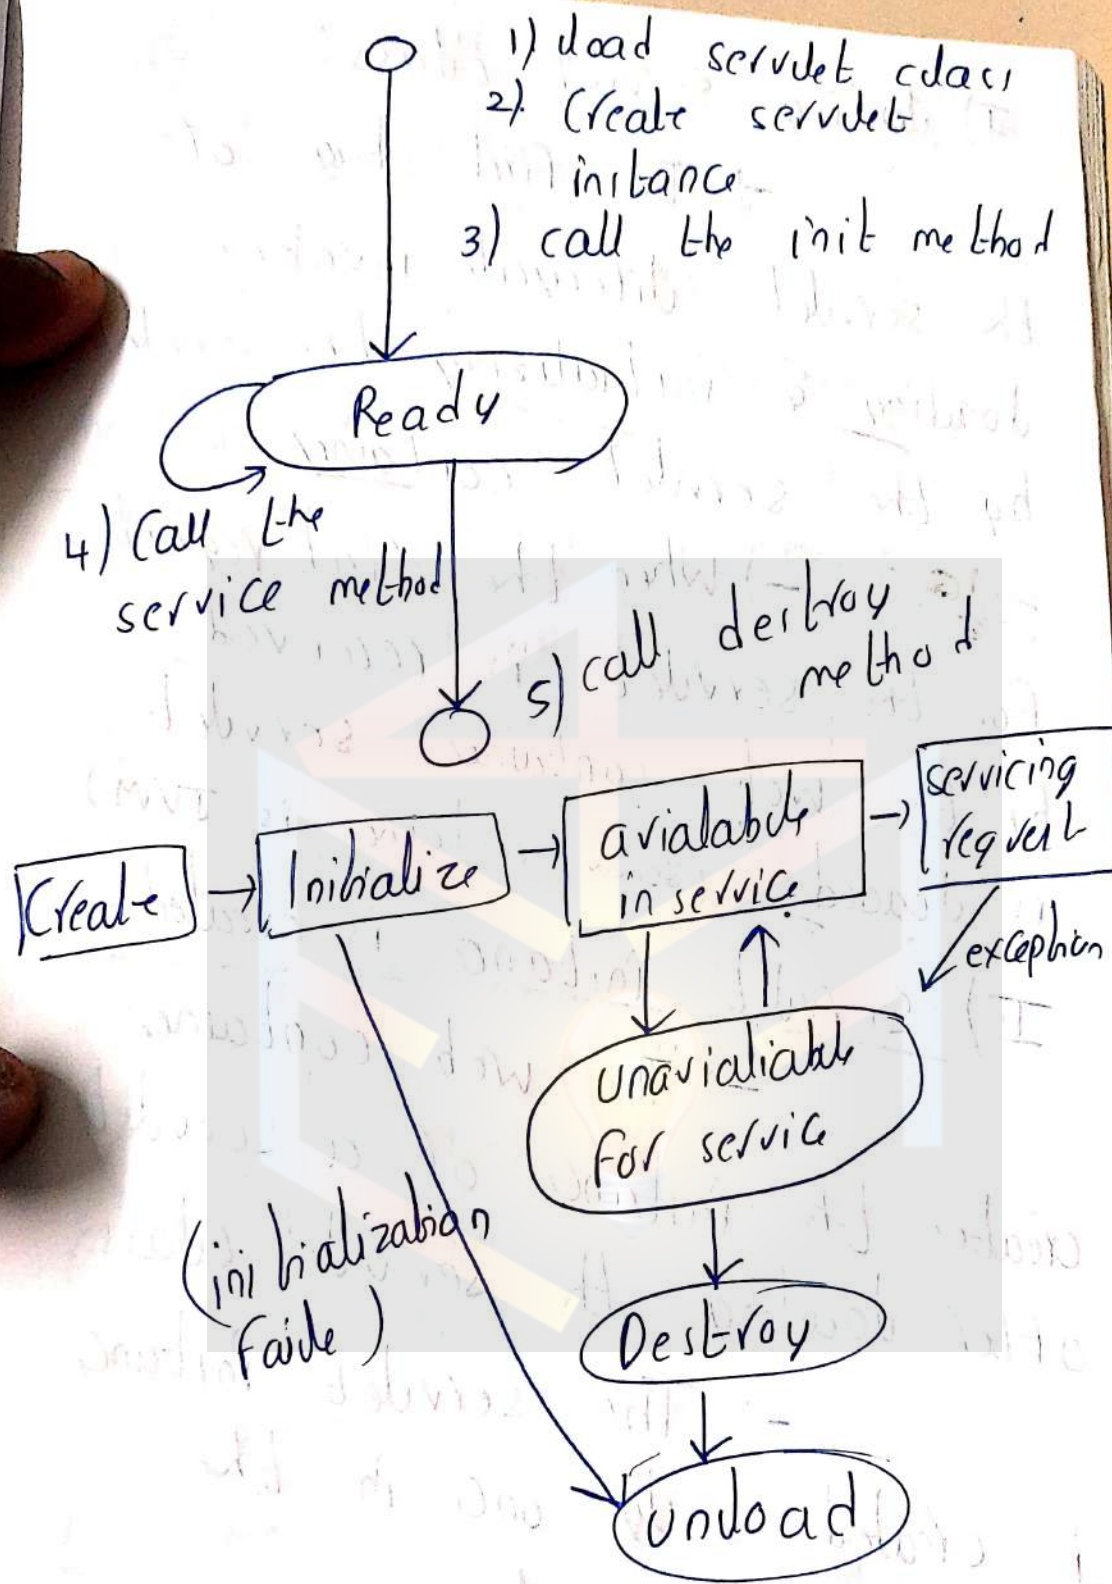 1) Load servlet class
2) Create servlet
instance
3) call the init method
Ready
4) Call the
service method
5) call destroy
method
Create
Initialize
avialable
in service
servicing
request
exception
unavialiable
for service
(initialization
faile)
Destroy
unload